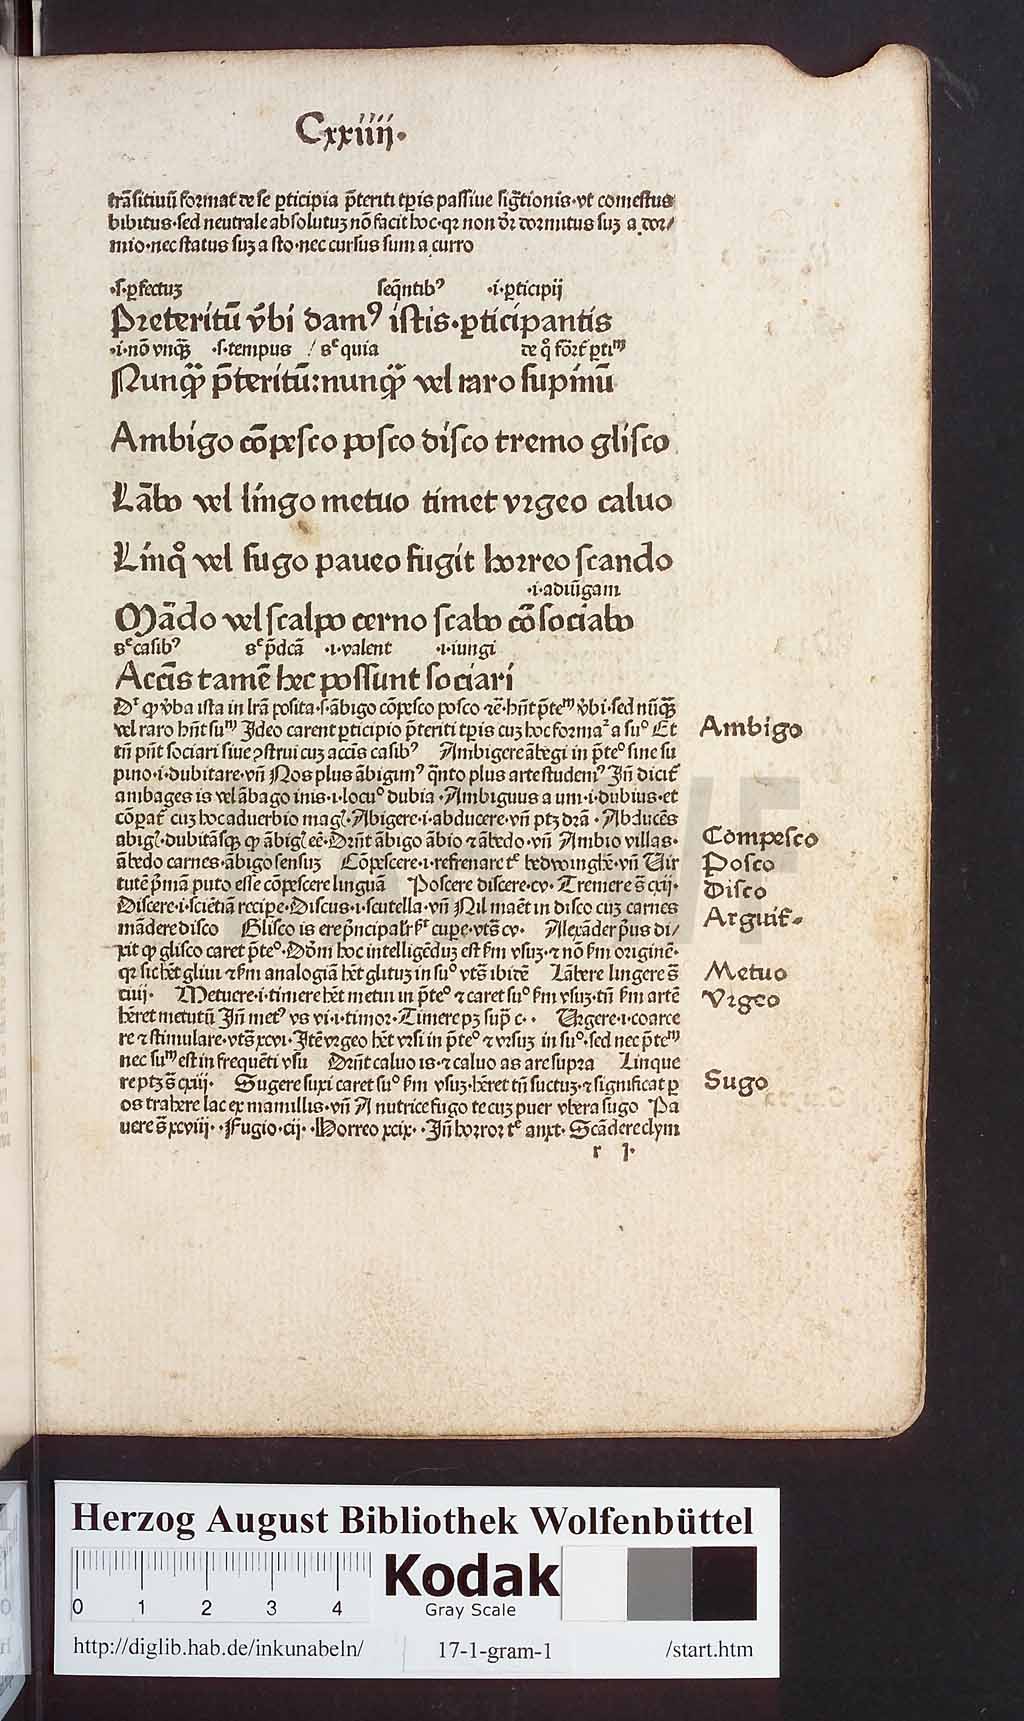 Cxxiiij.
trãsitiuũ format de se ꝑticipia p̃teriti tꝑis passiue sigñtionis·vt comestus
bibitus·sed neutrale absolutuꝫ nõ facit hoc·qꝛ non dr̃ dormitus suꝫ a dor/
mio·nec status suꝫ a sto·nec cursus sum a curro
·s·ꝑfectuꝫ seq̃ntibꝰ ·i·ꝑticipij
Preteritũ v̾bi damꝰ istis·ꝑticipantis
·i·nõ vnq̃ꝫ ·s·tempus / sᶜ quia de qͦ for̃t ꝑtiᵐ
Nunq̃ꝫ p̃teritũ:nunq̃ꝫ vel raro supinũ
Ambigo cõpesco posco disco tremo glisco
Lãbo vel lingo metuo timet vrgeo caluo
Linqͦ vel sugo paueo fugit horreo scando
·i·adiũgam
Mãdo vel scalpo cerno scabo cõsociabo
sᶜ casibꝰ sᶜ p̃dcã ·i·valent ·i·iungi
Accĩs tamẽ hec possunt sociari
Dʳ ꝙ v̾ba ista in lrã posita·s·ãbigo cõpesco posco ⁊c̃·hñt p̃teᵐ v̾bi·sed nũq̃ꝫ
vel raro hñt suᵐ Jdeo carent ꝑticipio p̃teriti tꝑis cuꝫ hoc formaᷣ a suᵒ Et
tñ pñt sociari siue ꝯstrui cuꝫ accĩs casibꝰ Ambigere ãbegi in p̃teᵒ sine su
pino·i·dubitare·vñ Nos plus ãbigimꝰ q̃nto plus arte studemꝰ Jñ dicit̃
ambages is vel ãbago inis·i·locuᵒ dubia·Ambiguus a um·i·dubius·et
cõparat̃ cuꝫ hoc aduerbio magꝭ·Abigere·i·abducere·vñ ptꝫ drã·Abducẽs
abigꝭ·dubitãsqꝫ ꝙ ãbigꝭ eẽ·Drñt ãbigo ãbio ⁊ ãbedo·vñ Ambio villas·
ãbedo carnes·ãbigo sensuꝫ Cõpescere·i·refrenare tᶜ bedwinghẽ·vñ Uir
tutẽ p̾mã puto esse cõpescere linguã Poscere discere·cv·Tremere s̃ cxij·
Discere·i·sciẽtiã recipe·Discus·i·scutella·vñ Nil maẽt in disco cuꝫ carnes
mãdere disco Glisco is ere cupe·vts̃ cv· Alexãder p̾us di/
xit ꝙ glisco caret p̃teᵒ·Dõm hoc intelligẽduꝫ est ẜm vsuꝫ·⁊ nõ ẜm originẽ·
qꝛ sic hẽt gliui ⁊ ẜm analogiã hẽt glituꝫ in suᵒ vts̃ ibidẽ Lãbere lingere s̃
ciiij· Metuere·i·timere hẽt metui in p̃teᵒ ⁊ caret suᵒ ẜm vsuꝫ·tñ ẜm artẽ
hẽret metutũ Jñ metꝰ vs vi·i·timor·Timere pꝫ sup̾ c·· Urgere·i·coarce
re ⁊ stimulare·vts̃ xcvi·Jtẽ vrgeo hẽt vrsi in p̃teᵒ ⁊ vrsuꝫ in suᵒ·sed nec p̃teᵐ
nec suᵐ est in frequẽti vsu Drñt caluo is·⁊ caluo as are supra Linque
re ptꝫ s̃ cxiij· Sugere suxi caret suᵒ ẜm vsuꝫ·hẽret tñ suctuꝫ·⁊ significat ꝑ
os trahere lac ex mamillis·vñ A nutrice fugo te cuꝫ puer vbera sugo Pa
uere s̃ xcviij··Fugio·cij··Horreo xcix··Jñ horror tᶜ anxt·Scãdere clym
r j·
Ambigo
Compesco
Posco
Disco
Arguit̃·
Metuo
Vrgeo
Sugo
Herzog August Bibliothek Wolfenbüttel
0 1 2 3 4
Kodak
Gray Scale
http://diglib.hab.de/inkunabeln/ 17-1-gram-1 /start.htm